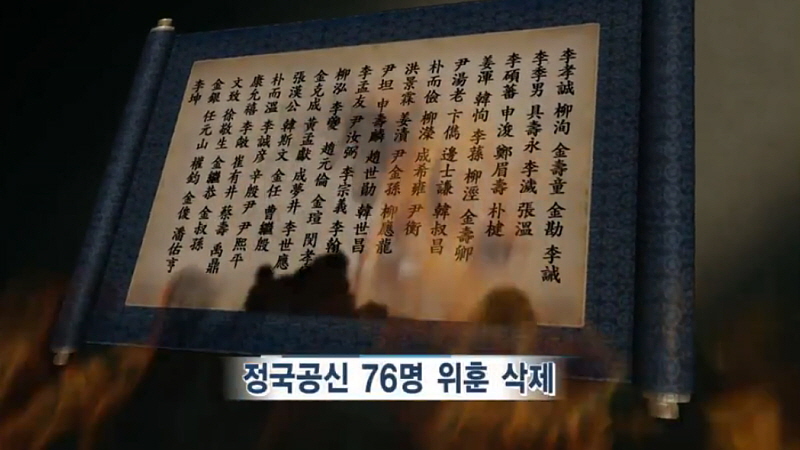 李孝誠 柳洵 金壽童 金勘 李誠
李季男 具壽永 李減 張溫
李碩蕃 申浚 鄭眉壽 朴楗
姜渾 韓恂 李蓀 柳涇 金壽卿
尹湯老 卞儁 邊士謙 韓叔昌
朴而儉 柳濚 成希雍 尹衡
洪景霖 姜漬 尹金孫 柳應龍
尹坦 申壽麟 趙世勛 韓世昌
李孟友 尹汝弼 李宗義 李翰
柳泓 李夔 趙元倫 金瑄 閔孝
金克成 黃孟獻 成夢井 李世應
張漢公 韓斯文 金任 曹繼殷
朴而溫 李誠彦 辛殷尹 尹熙平
康允禧 李敞 崔有井 蔡壽 禹鼎
文致 徐敬生 金繼恭 金叔孫
金銀 任元山 權鈞 金俊 潘佑亨
李坤
정국공신 76명 위훈 삭제